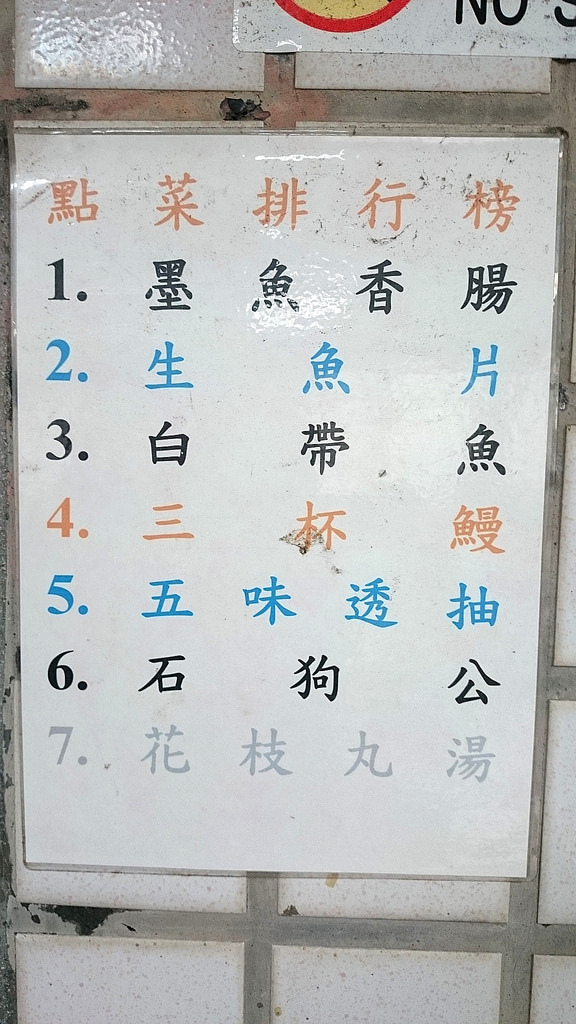 NO S
點菜排行榜
1. 墨魚香腸
2. 生魚片
3. 白帶魚
4. 三杯鰻
5. 五味透抽
6. 石狗公
7. 花枝丸湯